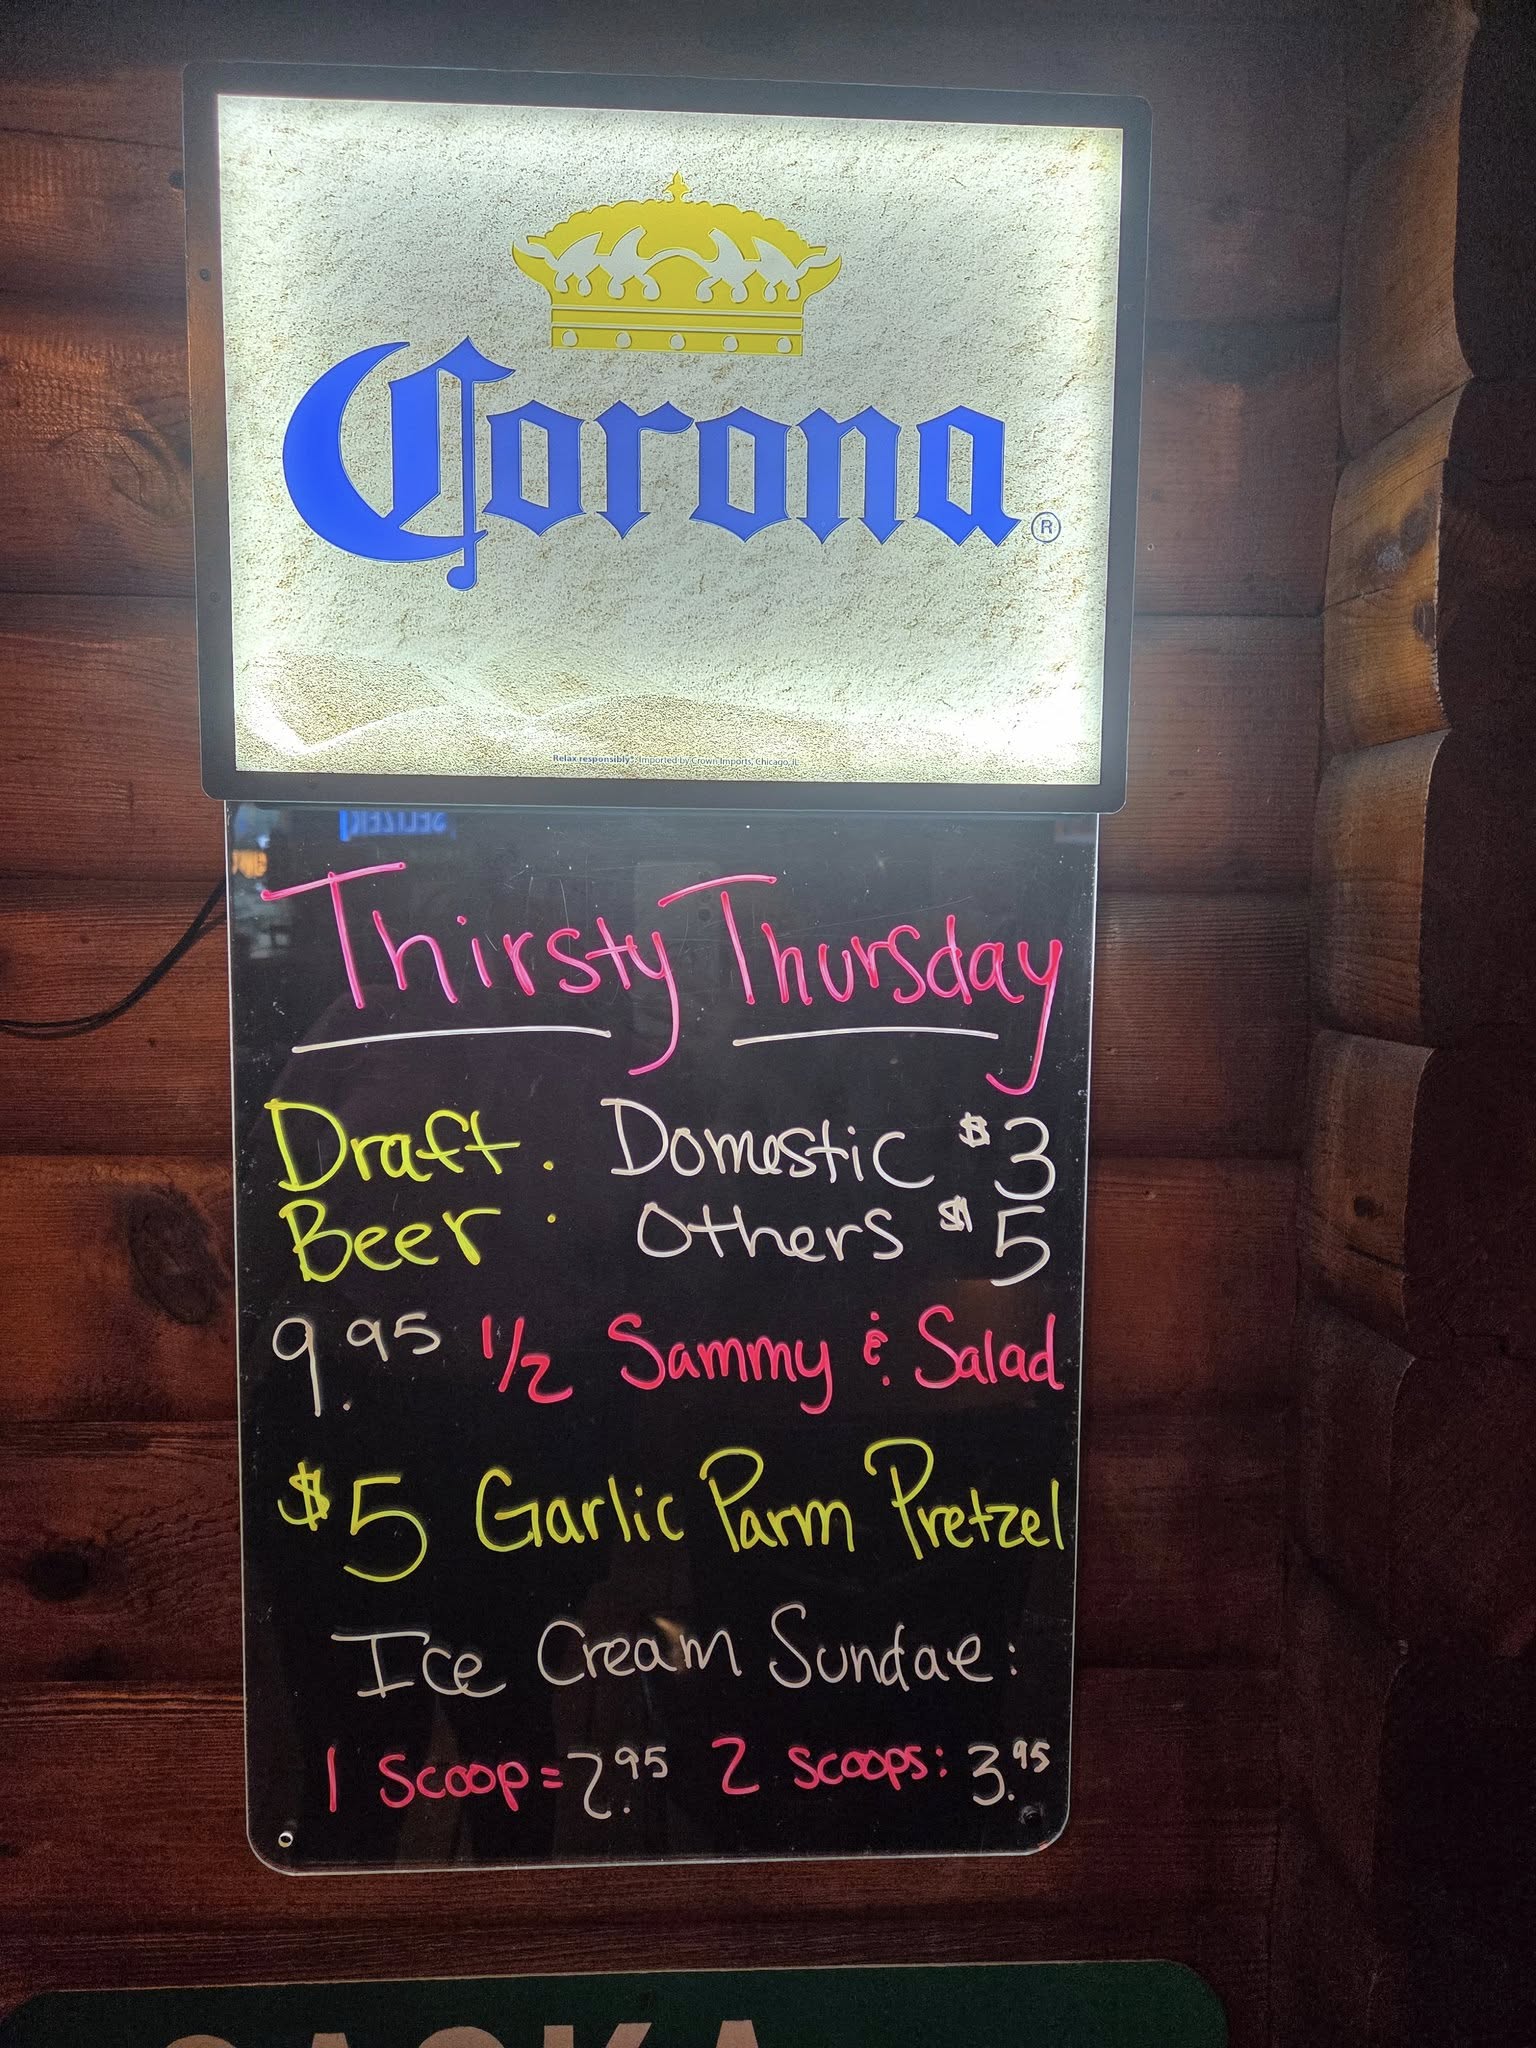 Corona®
Relax responsibly®. Imported by Crown Imports, Chicago, IL
SELTZER
Thirsty Thursday
Draft : Domestic $3
Beer : Others $5
9.95 1/2 Sammy & Salad
$5 Garlic Parm Pretzel
Ice Cream Sundae:
1 Scoop = 2.95 2 scoops: 3.95